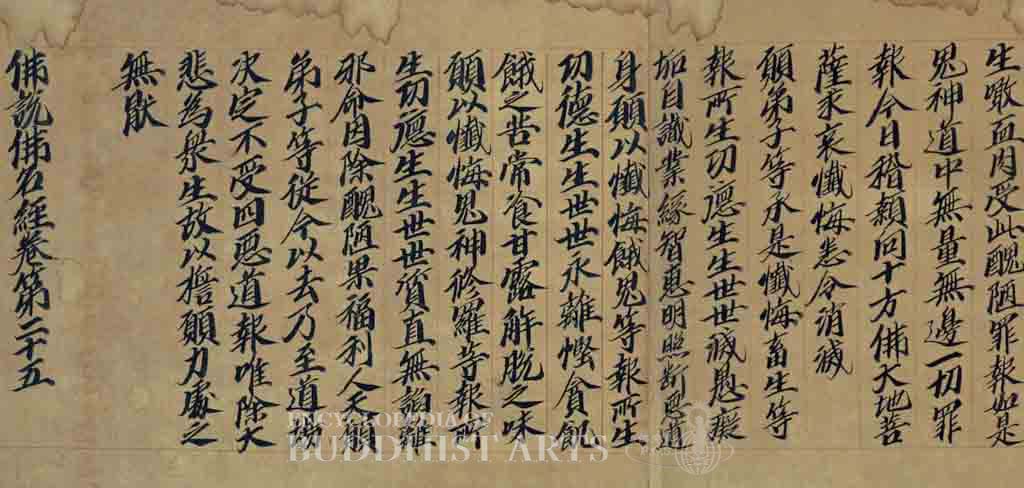 生噉血肉受此醜陋罪報如是
鬼神道中無量無邊一切罪
報今日稽顙向十方佛大地菩
薩求哀懺悔悉令消滅
願弟子等承是懺悔畜生等
報所生功德生生世世滅愚癡
垢自識業緣智惠明照斷惡道
身願以懺悔餓鬼等報所生
功德生生世世永離慳貪飢
餓之苦常食甘露解脫之味
願以懺悔鬼神修羅等報所
生功德生生世世質直無諂離
邪命因除醜陋果福利人天願
弟子等從今以去乃至道場
决定不受四惡道報唯除大
悲為衆生故以誓願力處之
無猒
佛說佛名經卷第二十五
ENCYCLOPEDIA OF
BUDDHIST ARTS